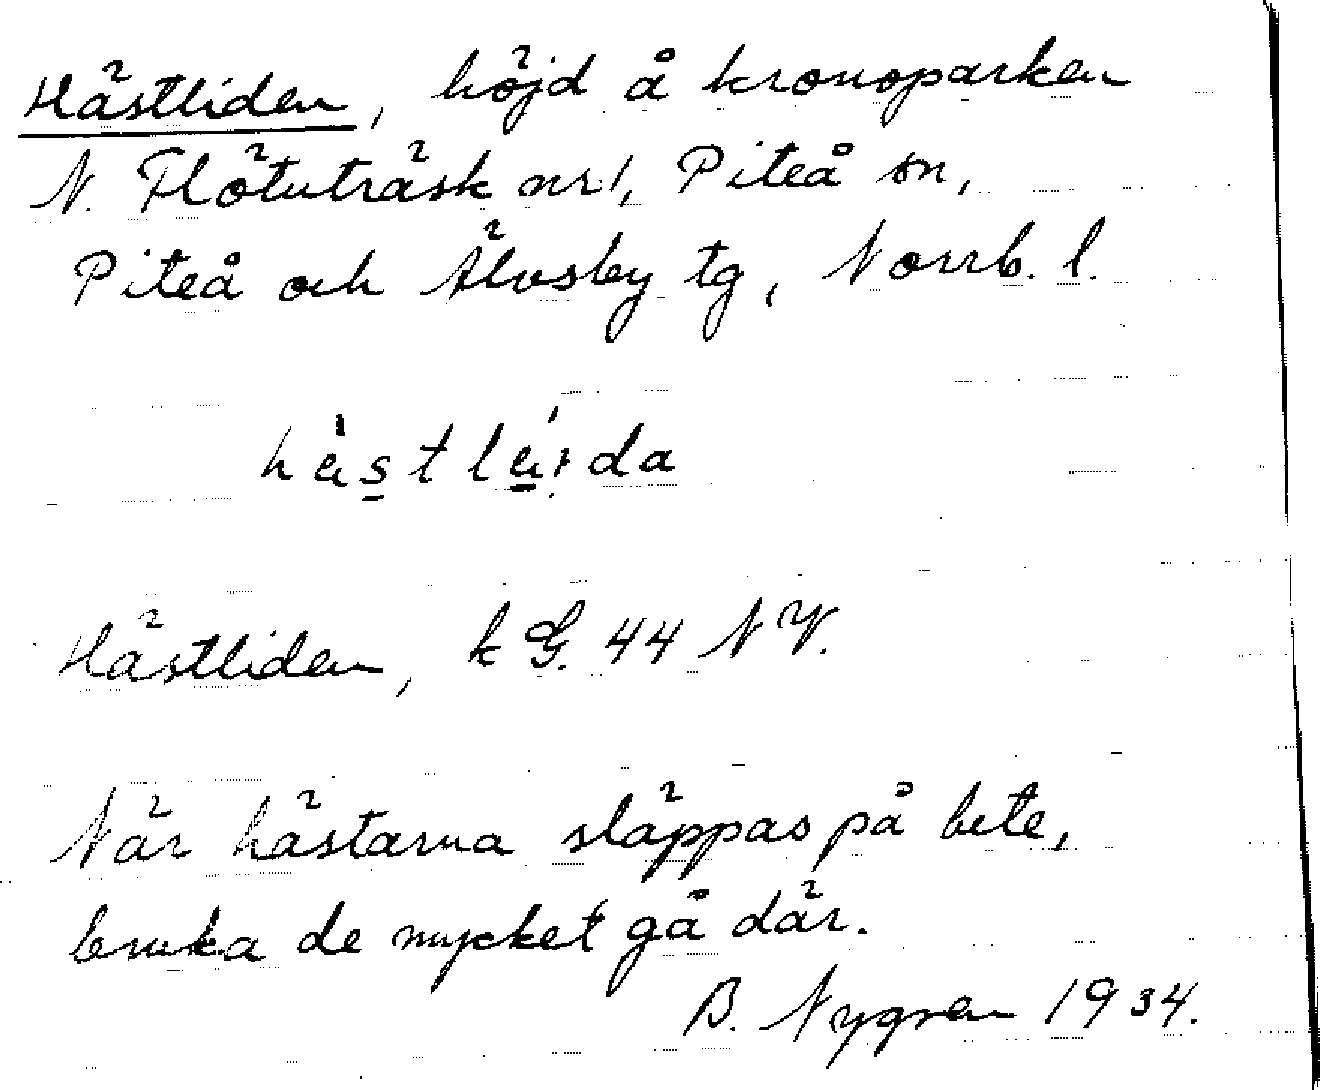 Hästliden, höjd å kronoparken
N. Flötuträsk nr 1, Piteå sn,
Piteå och Älvsby tg, Norrb. l.
hästläida
Hästliden, kG. 44 NV.
När hästarna släppas på bete,
bruka de mycket gå där.
B. Nygren 1934.